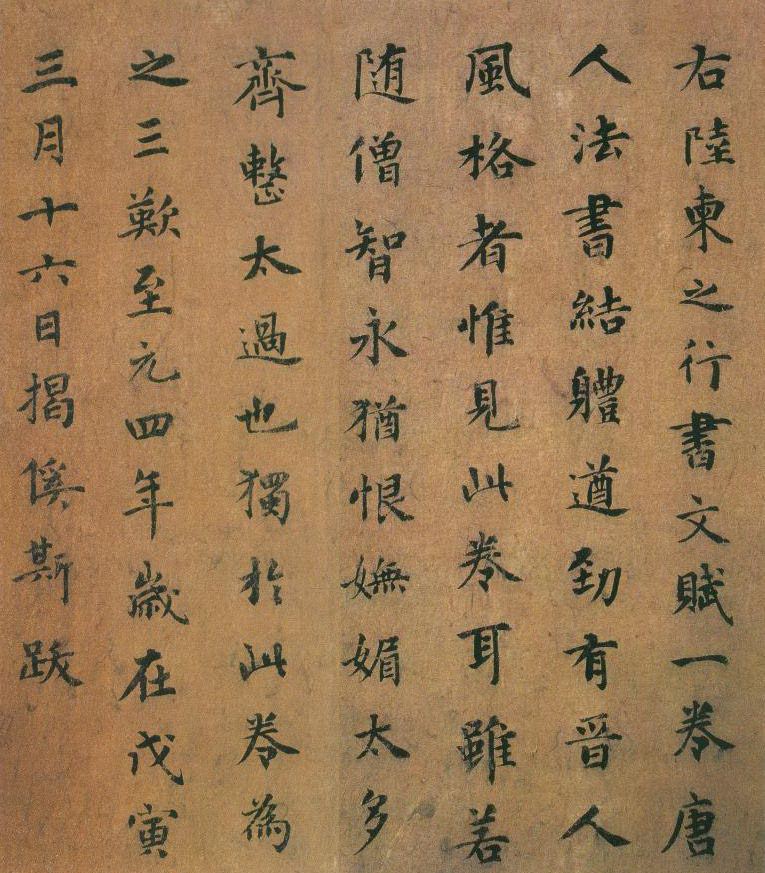 右陸柬之行書文賦一卷唐
人法書結軆遒勁有晉人
風格者惟見此卷耳雖若
随僧智永猶恨嫵媚太多
齊整太過也獨於此卷為
之三歎至元四年歲在戊寅
三月十六日揭傒斯跋